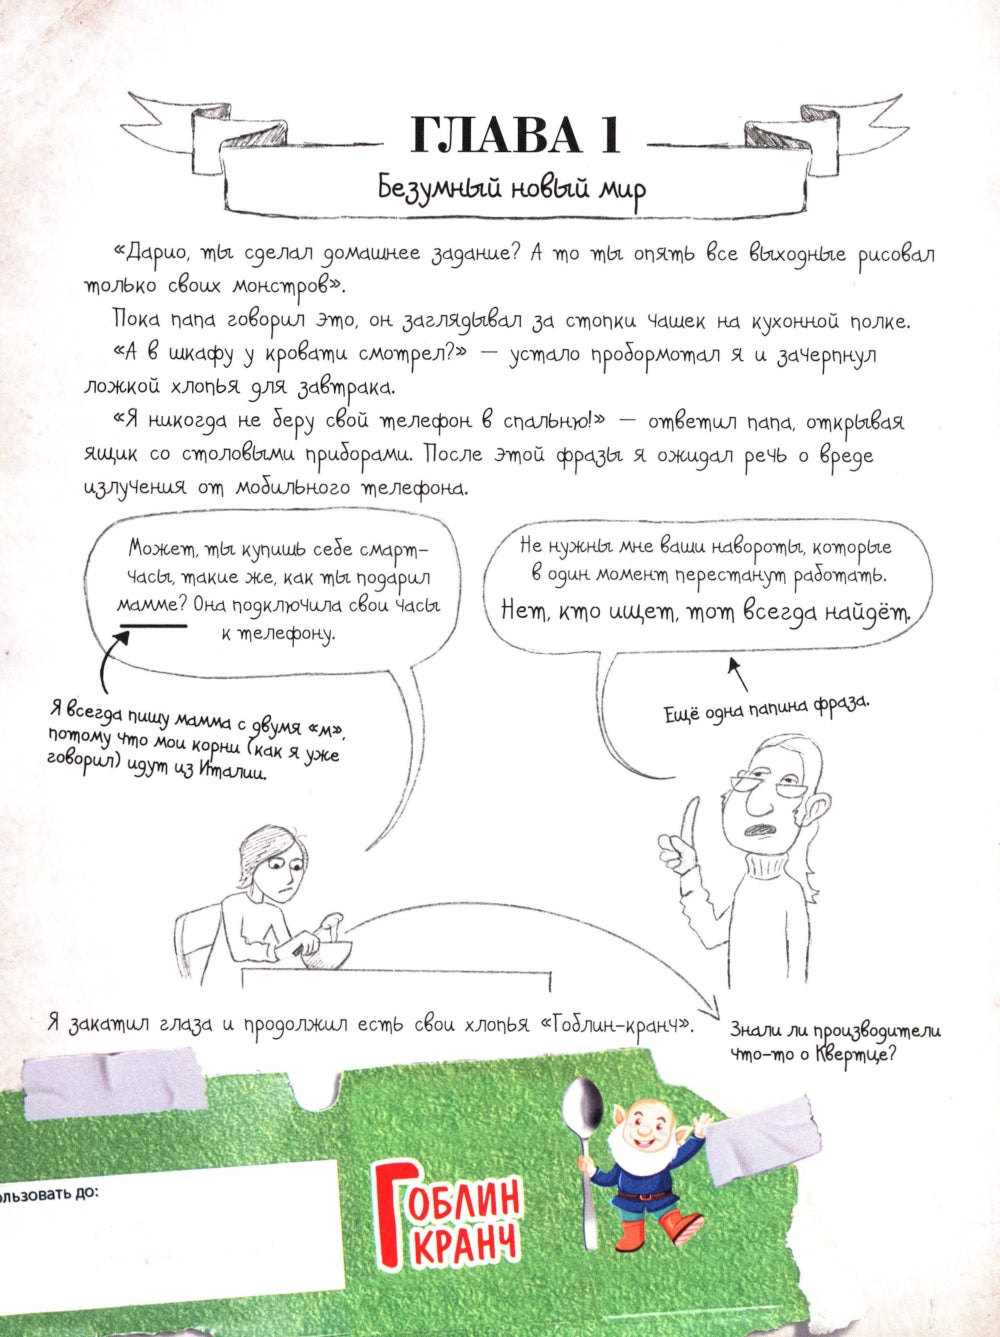 ГЛАВА 1
Безумный новый мир
«Дарио, ты сделал домашнее задание? А то ты опять все выходные рисовал
только своих монстров».
Пока папа говорил это, он заглядывал за стопки чашек на кухонной полке.
«А в шкафу у кровати смотрел?» — устало пробормотал я и зачерпнул
ложкой хлопья для завтрака.
«Я никогда не беру свой телефон в спальню!» — ответил папа, открывая
ящик со столовыми приборами. После этой фразы я ожидал речь о вреде
излучения от мобильного телефона.
Может, ты купишь себе смарт-
часы, такие же, как ты подарил
мамме? Она подключила свои часы
к телефону.
Не нужны мне ваши навороты, которые
в один момент перестанут работать.
Нет, кто ищет, тот всегда найдёт.
Я всегда пишу мамма с двумя «м»,
потому что мои корни (как я уже
говорил) идут из Италии.
Ещё одна папина фраза.
Я закатил глаза и продолжил есть свои хлопья «Гоблин-кранч».
Знали ли производители
что-то о Квертце?
ользовать до:
ГОБЛИН
КРАНЧ